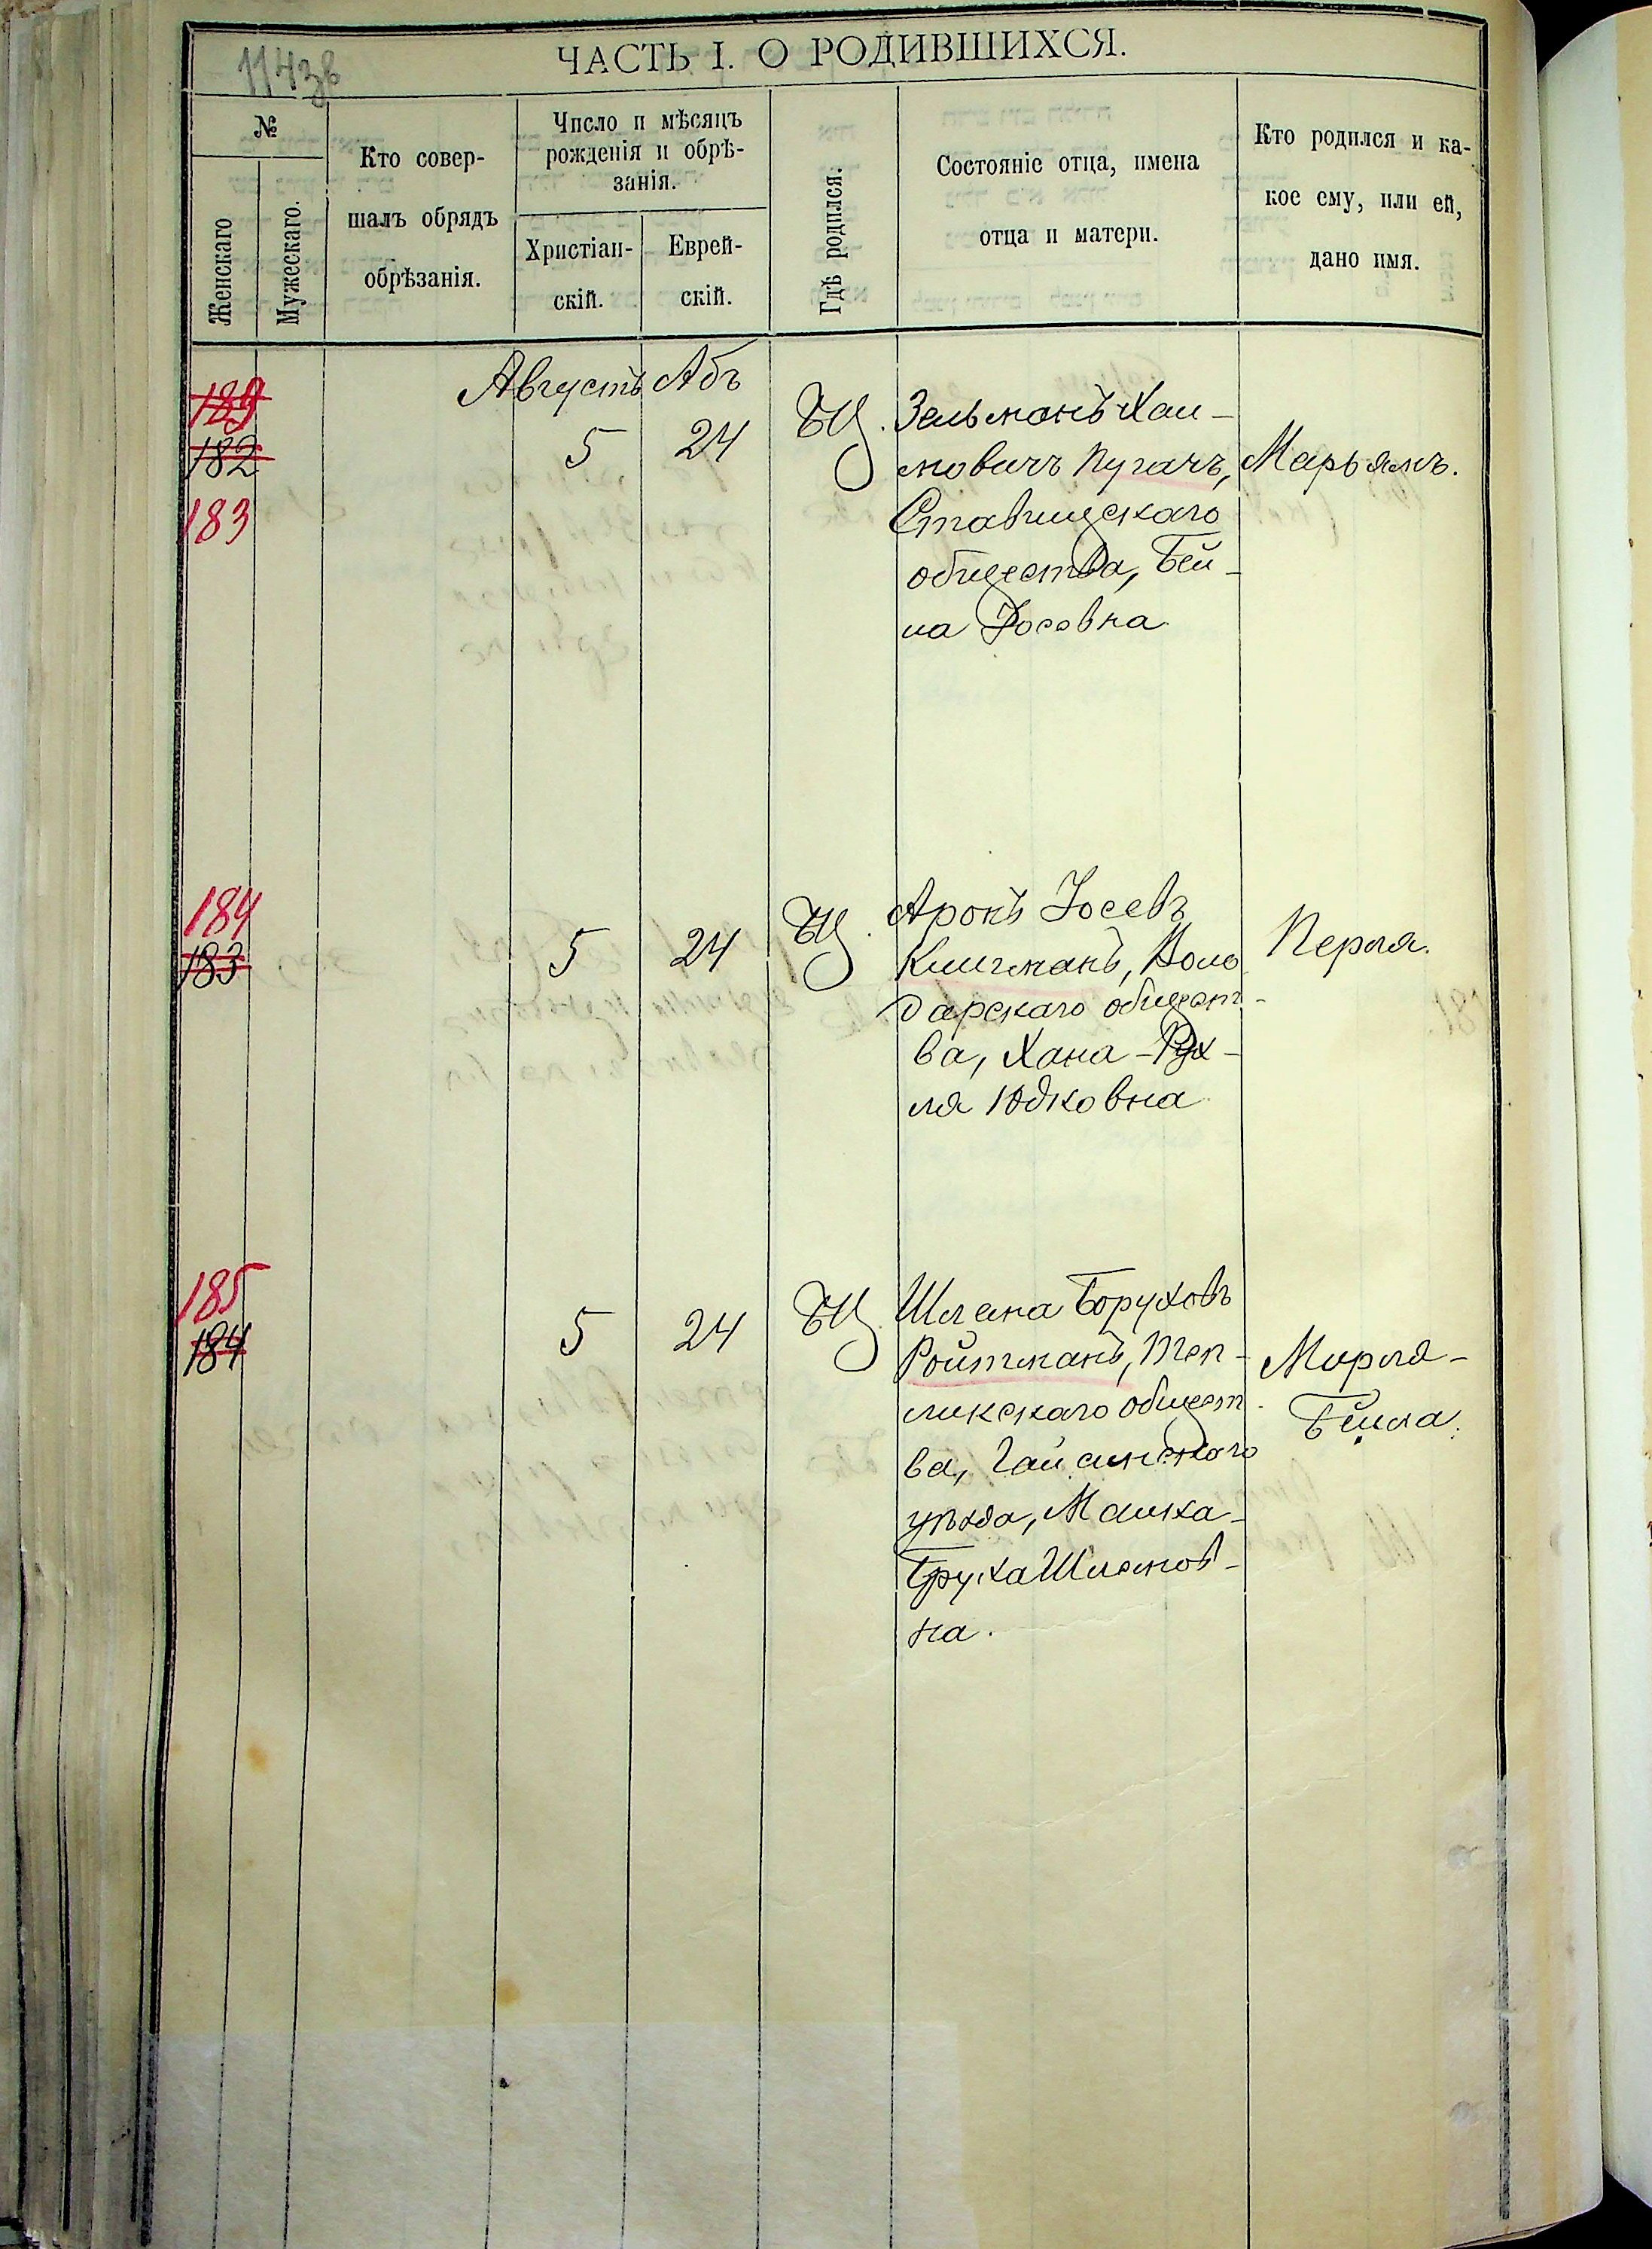 1143в
ЧАСТЬ I. О РОДИВШИХСЯ.
№
Женскаго
Мужескаго.
Кто совер-
шалъ обрядъ
обрѣзанія.
Число и мѣсяцъ
рожденія и обрѣ-
занія.
Христіан-
скій.
Еврей-
скій.
Гдѣ родился.
Состояніе отца, имена
отца и матери.
Кто родился и ка-
кое ему, или ей,
дано имя.
Августъ Абъ
182
183
5
24
БЦ.
Зельманъ Хаи-
мовичъ Пугачъ,
Ставищскаго
общества, Бей-
ла Іосевна
Марьямъ.
184
183
5
24
БЦ.
Аронъ Іосевъ
Клигманъ, Воло
дарскаго общест-
ва, Хана-Рух-
ля Юдковна
Перля.
185
184
5
24
БЦ.
Шлема Боруховъ
Ройтманъ, Теп-
ликскаго общест-
ва, Гайсинскаго
уѣзда, Малка-
Бруха Шлемов-
на.
Мирля-
Бейла.